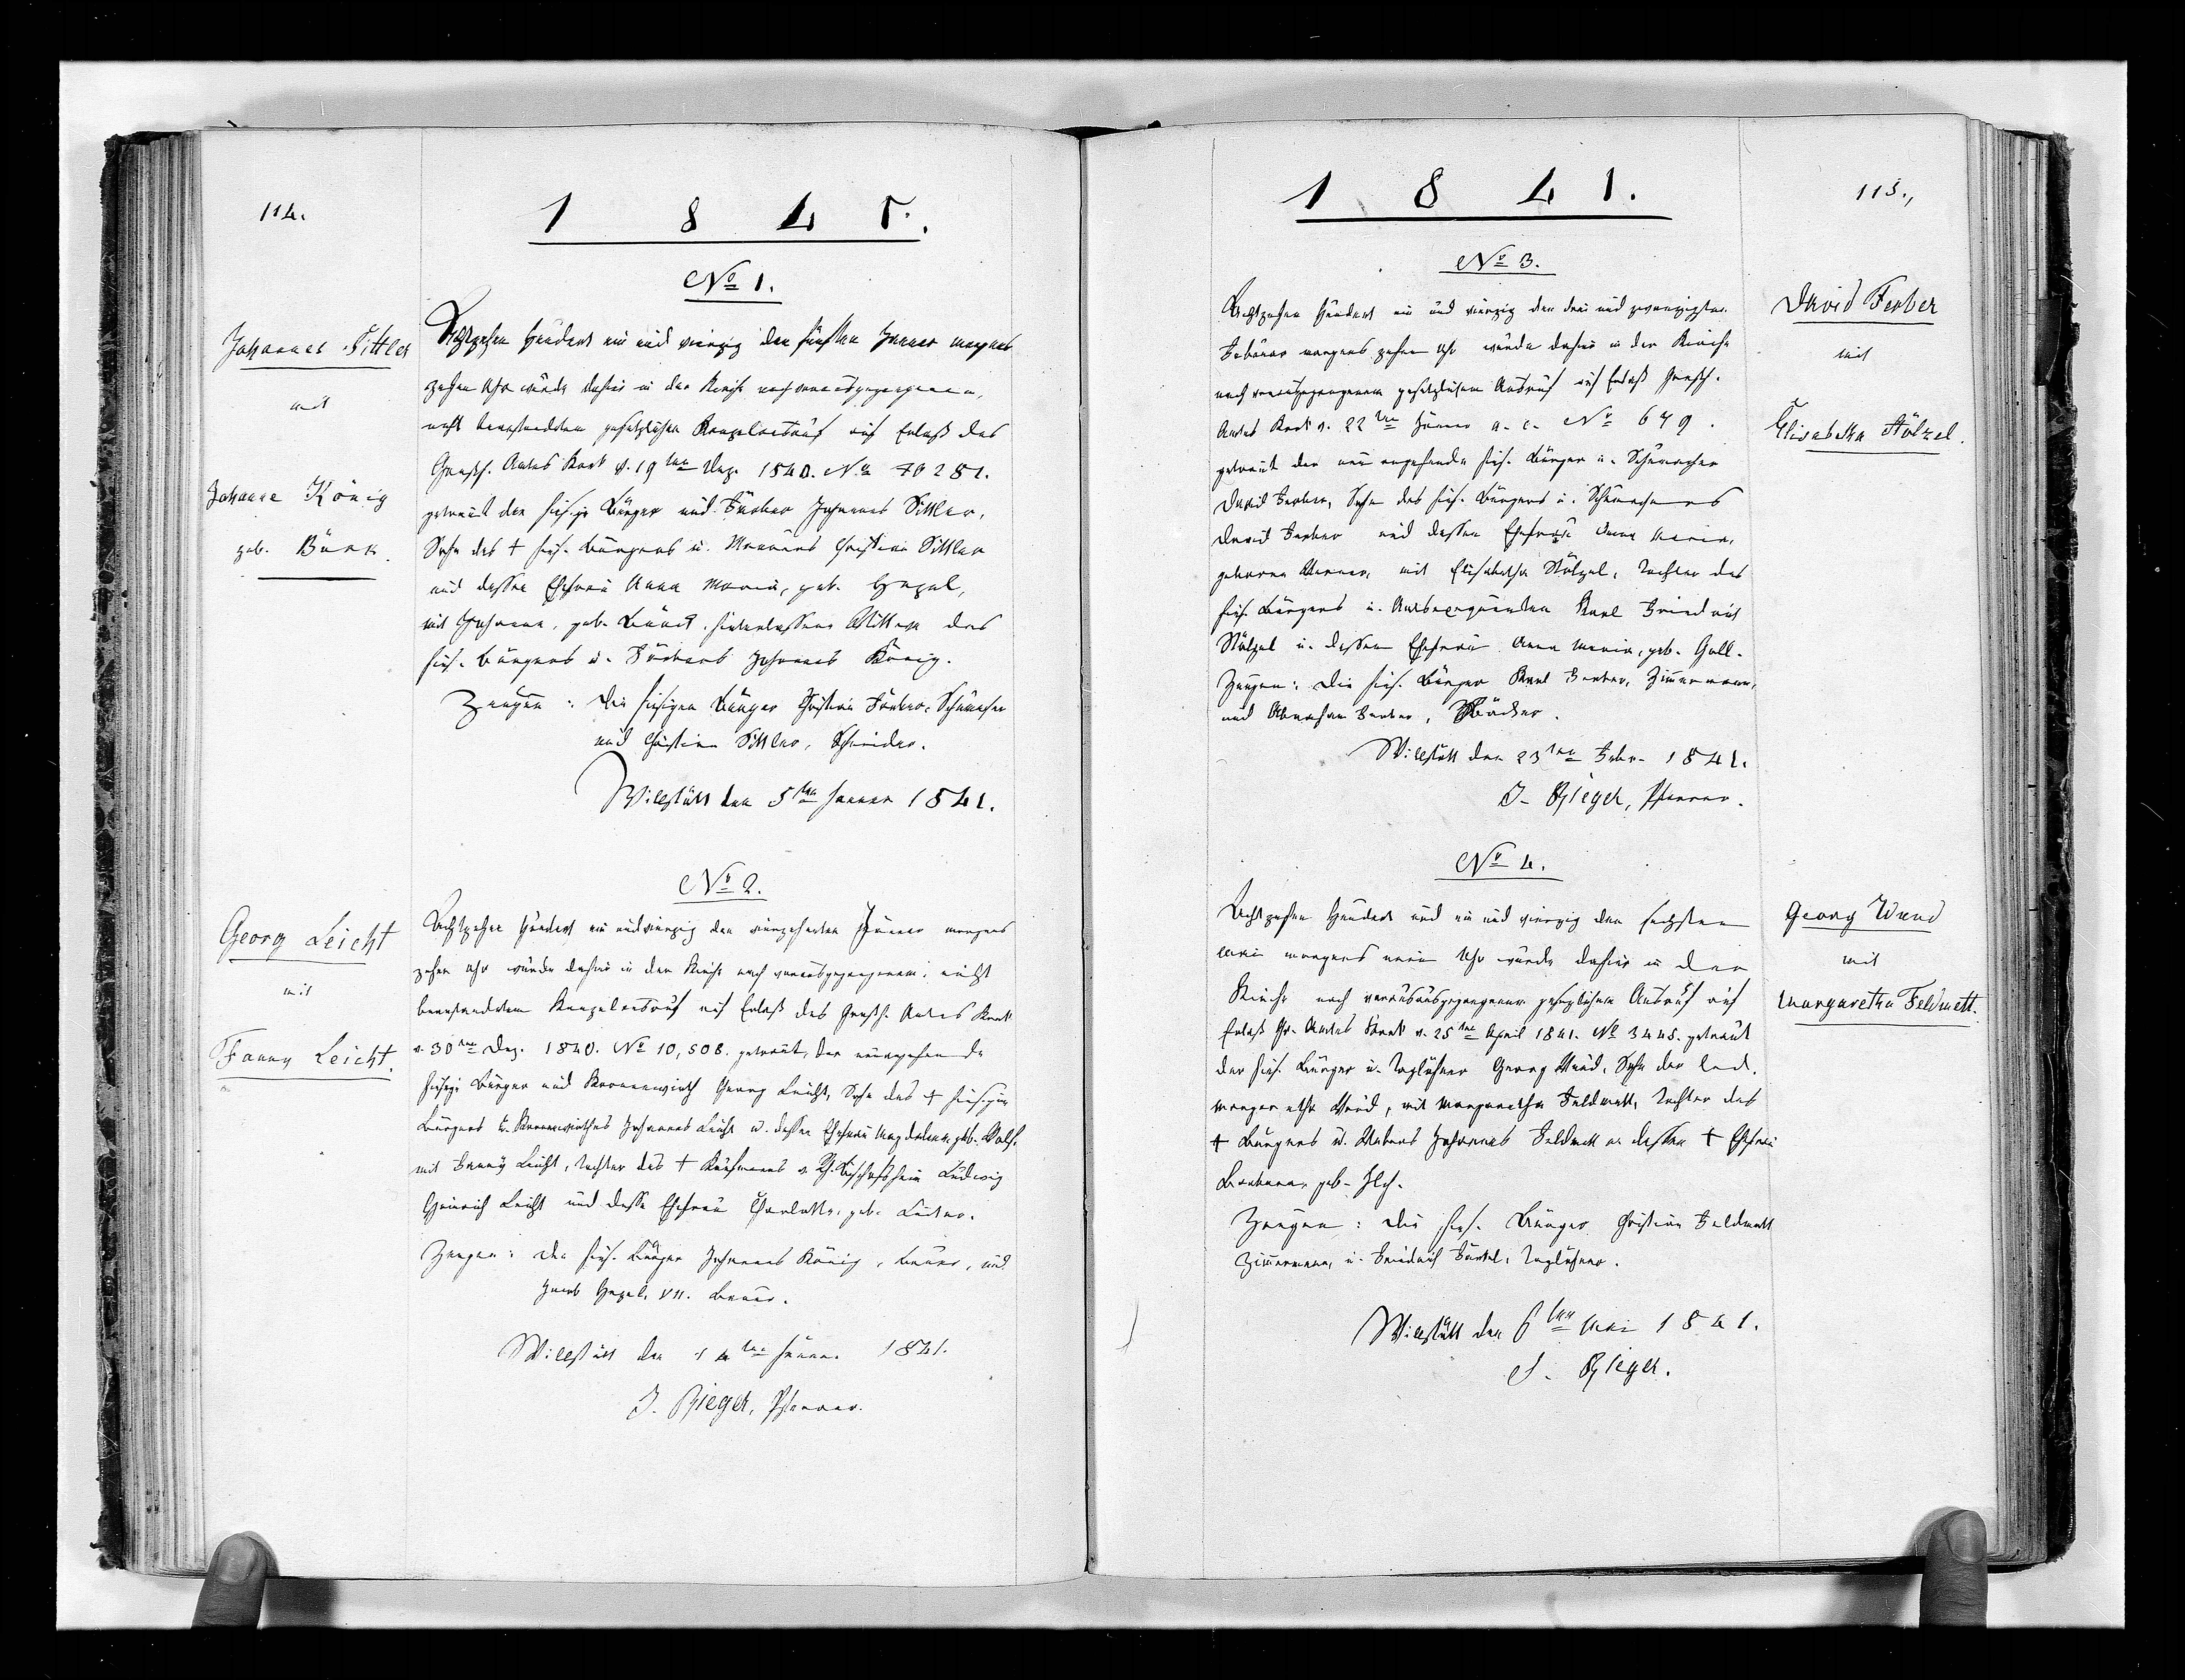 114.
1 8 4 1.
No 1.
Johannes Sittler
mit
Johanna König
geb. Bürk.
Achtzehen hundert ein und vierzig den fünften Jenner morgens
zehen Uhr wurde dahier in der Kirche nach vorausgegangenem,
nicht beanstandetem gesetzlichen Kanzelausruf auf Erlaß des
Großh. Amtes Kork v. 19ten Dez. 1840. No 10281.
getraut der hiesige Bürger und Färber Johannes Sittler,
Sohn des † hies. Bürgers u. Maurers Christian Sittler
und dessen Ehefrau Anna Maria, geb. Hezel,
mit Johanna, geb. Bürck. hinterlassene Wittwe des
hies. Bürgers u. Färbers Johannes König.
Zeugen: die hiesigen Bürger Christian Färber, Schumacher
und Christian Sittler, Schneider.
Willstätt den 5ten Jenner 1841.
No 2.
Georg Leicht
mit
Fanny Leicht.
Achtzehen hundert ein und vierzig den vierzehenten Jänner morgens
zehen Uhr wurde dahier in der Kirche nach vorausgegangenem, nicht
beanstandetem Kanzelausruf auf Erlaß des Großh. Amtes Kork
v. 30ten Dez. 1840. No 10,508. getraut, der neuangehende
hiesige Bürger und Kronenwirth Georg Leicht, Sohn des † hiesigen
Bürgers u. Kronenwirthes Johannes Leicht u. dessen Ehefrau Magdalena geb.
mit Fanny Leicht, Tochter des † Kaufmanns v. Rh. Bischofsheim Ludwig
Heinrich Leicht und dessen Ehefrau Charlotte, geb.
Zeugen: die hies. Bürger Johannes König, Bauer, und
Jacob Hezel, VII. Bauer.
Willstätt den 14ten Jänner 1841.
J. Rieger, Pfarrer.
1 8 4 1.
115.,
No 3.
David Ferber
mit
Elisabetha Stölzel.
Achtzehen hundert ein und vierzig den drei und zwanzigsten
Februar morgens zehen Uhr wurde dahier in der Kirche
nach vorausgegangenem gesetzlichem Ausruf auf Erlaß Großh.
Amtes Kork v. 22ten Jänner a. c. No 679.
getraut der neu angehende hies. Bürger u. Schumacher
David Ferber, Sohn des hies. Bürgers u. Schumachers
David Ferber und dessen Ehefrau Anna Maria,
geborne, mit Elisabetha Stölzel, Tochter des
hies. Bürgers u. Karl Friedrich
Stölzel u. dessen Ehefrau Anna Maria, geb. Gall.
Zeugen: die hies. Bürger Karl Ferber, Zimmermann,
und Abraham Ferber, Bäcker.
Willstätt den 23ten Febr. 1841.
J. Rieger, Pfarrer.
No 4.
Georg Wund
mit
Margaretha Feldmett.
Achtzehen Hundert und ein und vierzig den sechsten
Mai morgens neun Uhr wurde dahier in der
Kirche nach vorausgegangenem gesezlichem Ausruf auf
Erlaß Gr. Amtes Kork v. 25ten April 1841. No 3445. getraut
der hies. Bürger u. Taglöhner Georg Wund, Sohn der led.
Margaretha Wund, mit Margaretha Feldmett, Tochter des
† Bürgers u. Webers Johannes Feldmett u. dessen † Ehefrau
Barbara, geb.
Zeugen: die hies. Bürger Christian Feldmett
Zimmermann, u. Friedrich, Taglöhner.
Willstätt den 6ten Mai 1841.
J. Rieger.